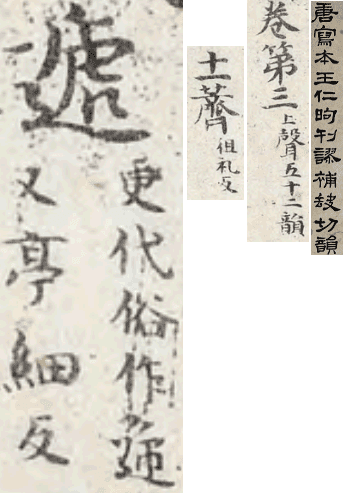 唐寫本王仁昫刊謬補缺切韻
卷第三
上聲五十二韻
十一薺
徂礼反
遞
更代俗作
又亭細反